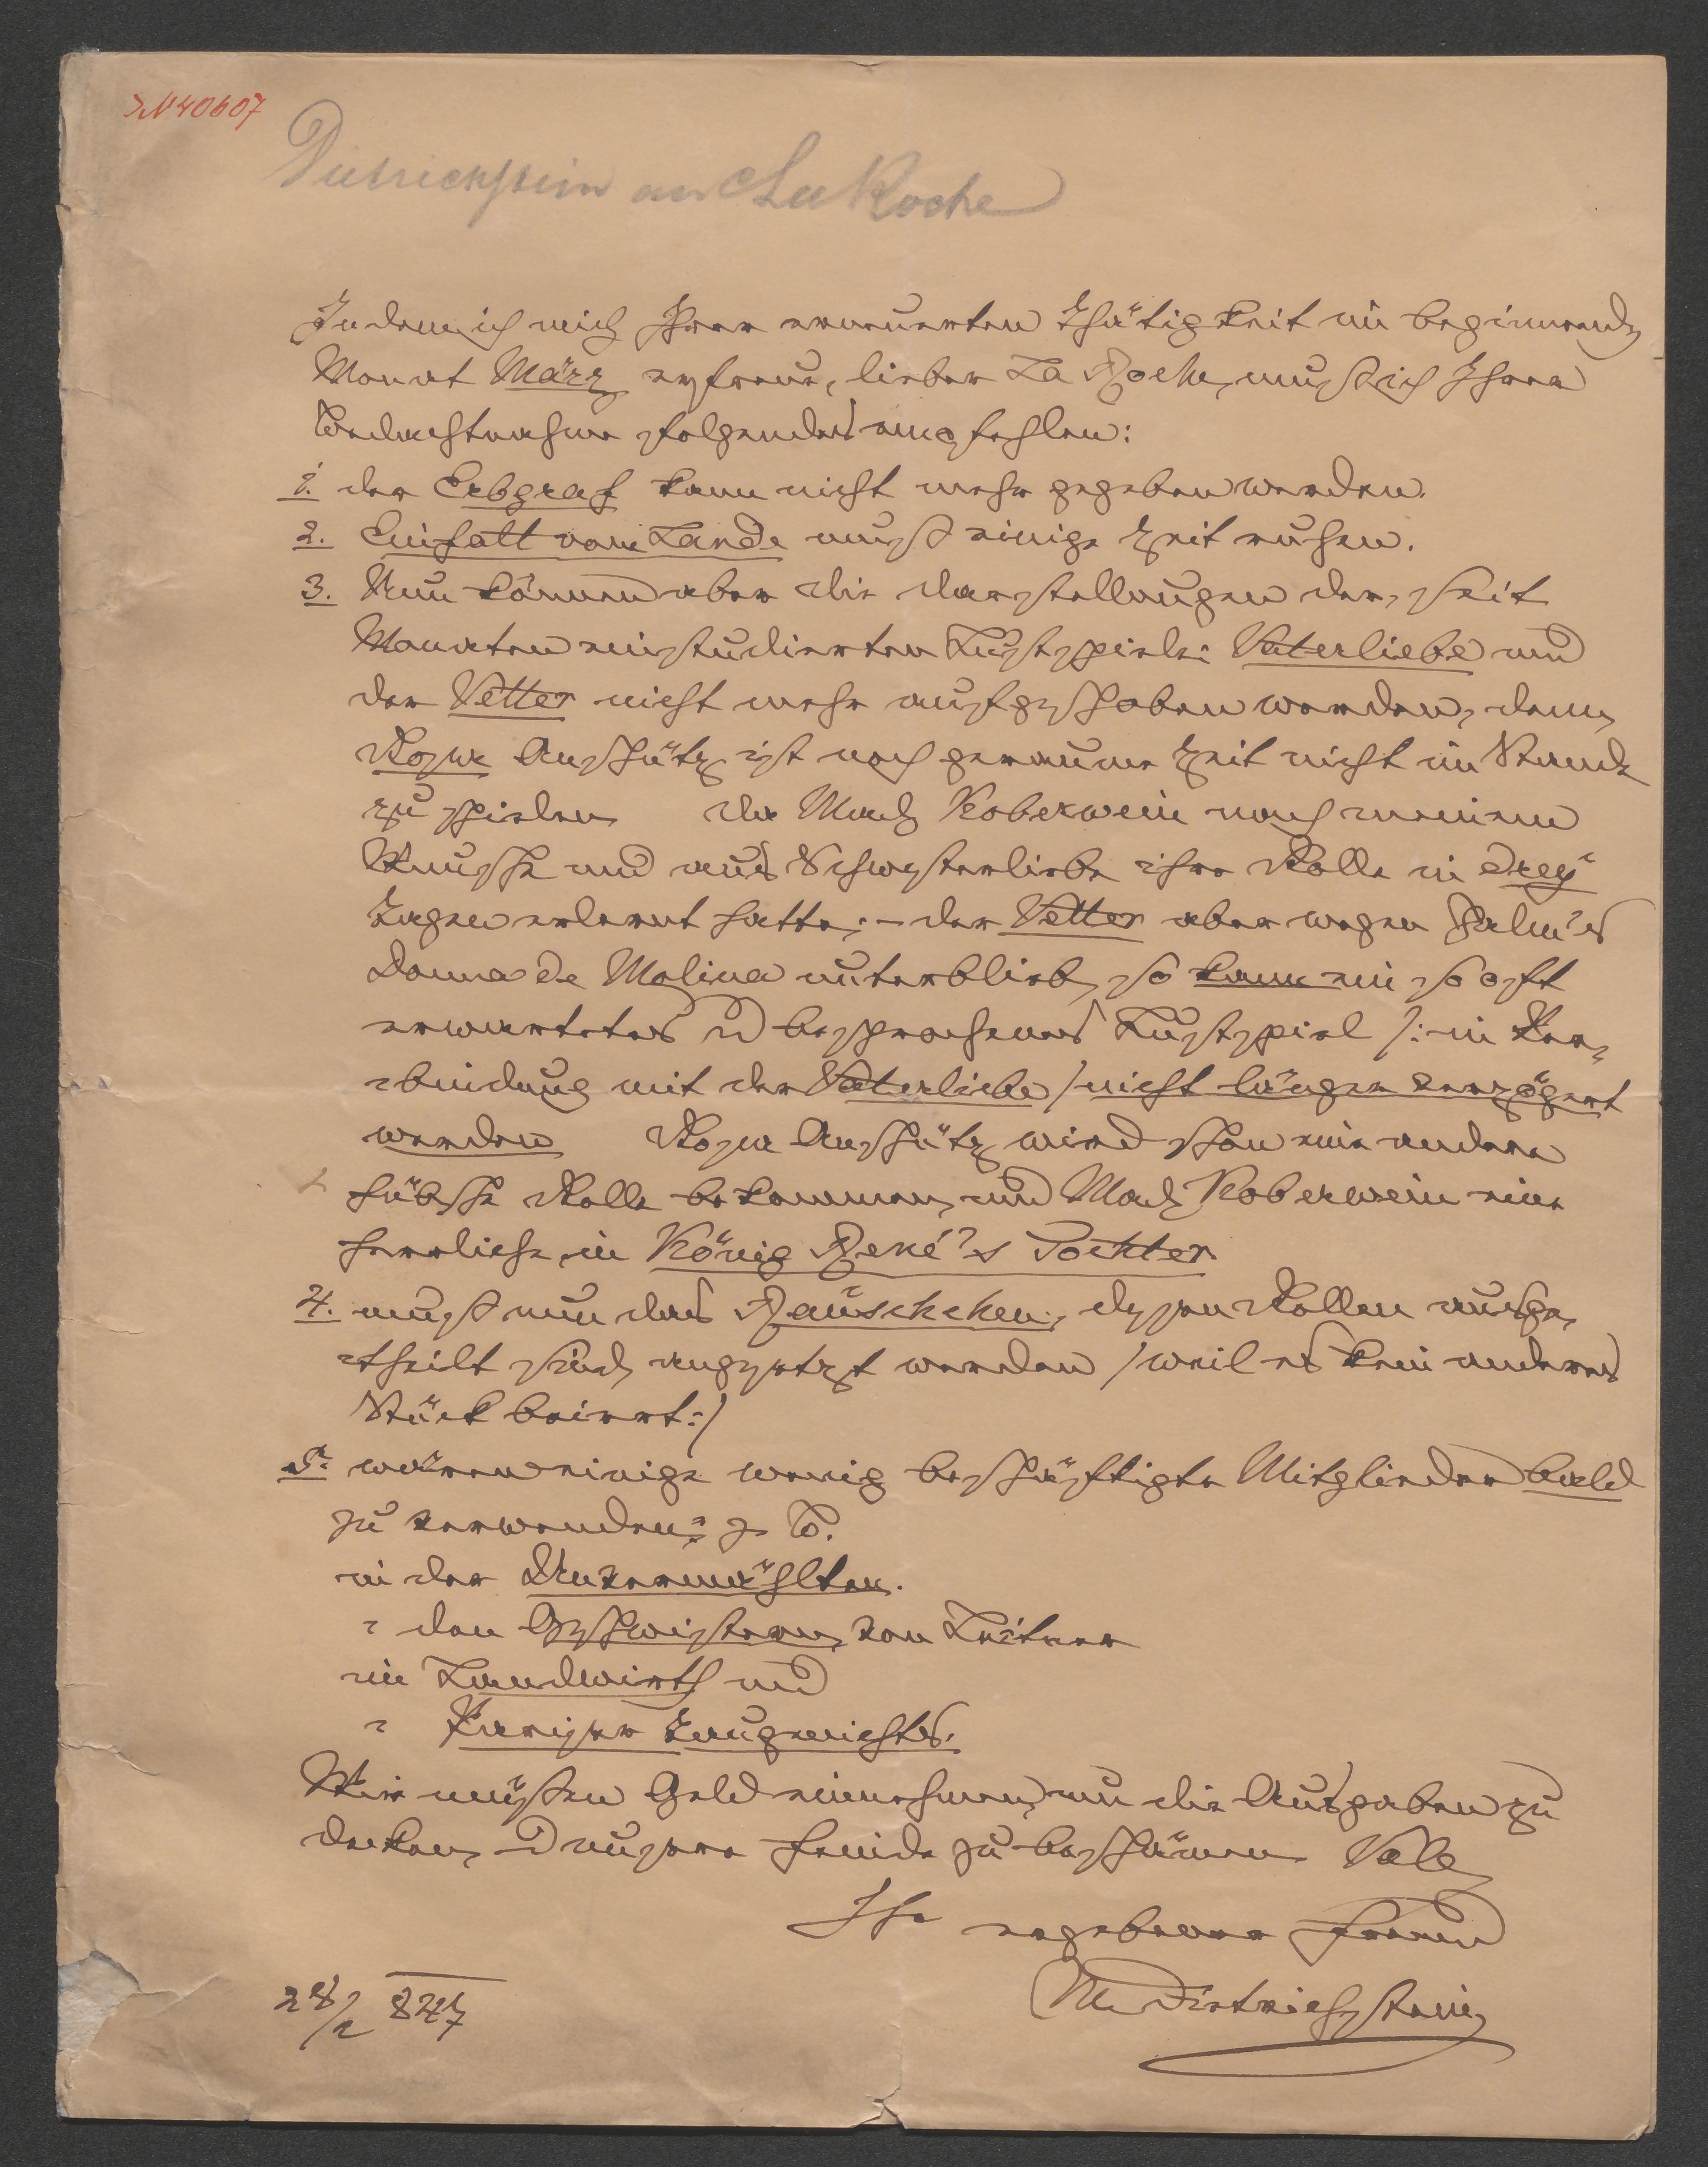 IN 40607
Dietrichstein an La Roche
Indem ich mich Ihrer erneuerten Thätigkeit im beginnend
Monat März erfreue, lieber La Roche, muß ich Ihrer
Bedachtnahme folgendes empfehlen:
1. der Erbgraf kann nicht mehr gegeben werden.
2. Einfalt vom Lande muß einige Zeit ruhen.
3. Nun können aber die Darstellungen der, seit
Monaten einstudierten Lustspiele: Vaterliebe und
der Vetter nicht mehr aufgeschoben werden, denn
Rosa Anschütz ist noch geraume Zeit nicht im Stande
zu spielen da Mad Koberwein nach meinem
Wunsche und aus Schwesterliebe ihre Rolle in drey
Tagen erlernt hatte; – der Vetter aber wegen Halm's
Donna de Molina unterblieb, so kann ein so oft
erwartetes u besprochenes Lustspiel /: in Ver-
bindung mit der Vaterliebe / nicht länger verzögert
werden Rosa Anschütz wird schon eine andere
hübsche Rolle bekommen, und Mad Koberwein eine
herrliche in König René's Tochter
4. muß nun das Räuschchen, dessen Rollen ausge-
theilt sind, angesetzt werden / weil es kein anderes
Stück beirrt:/
5. wären einige wenig beschäftigte Mitglieder bald
zu verwenden: z. B.
in der Unvermählten.
" den Geschwistern, von Leitner
im Landwirth und
" Pariser Taugenichts.
Wir müßen Geld einnehmen, um die Ausgaben zu
decken, u unsere Feinde zu beschämen Vale
Ihr ergebener Freund
M Dietrichstein
28/2 847